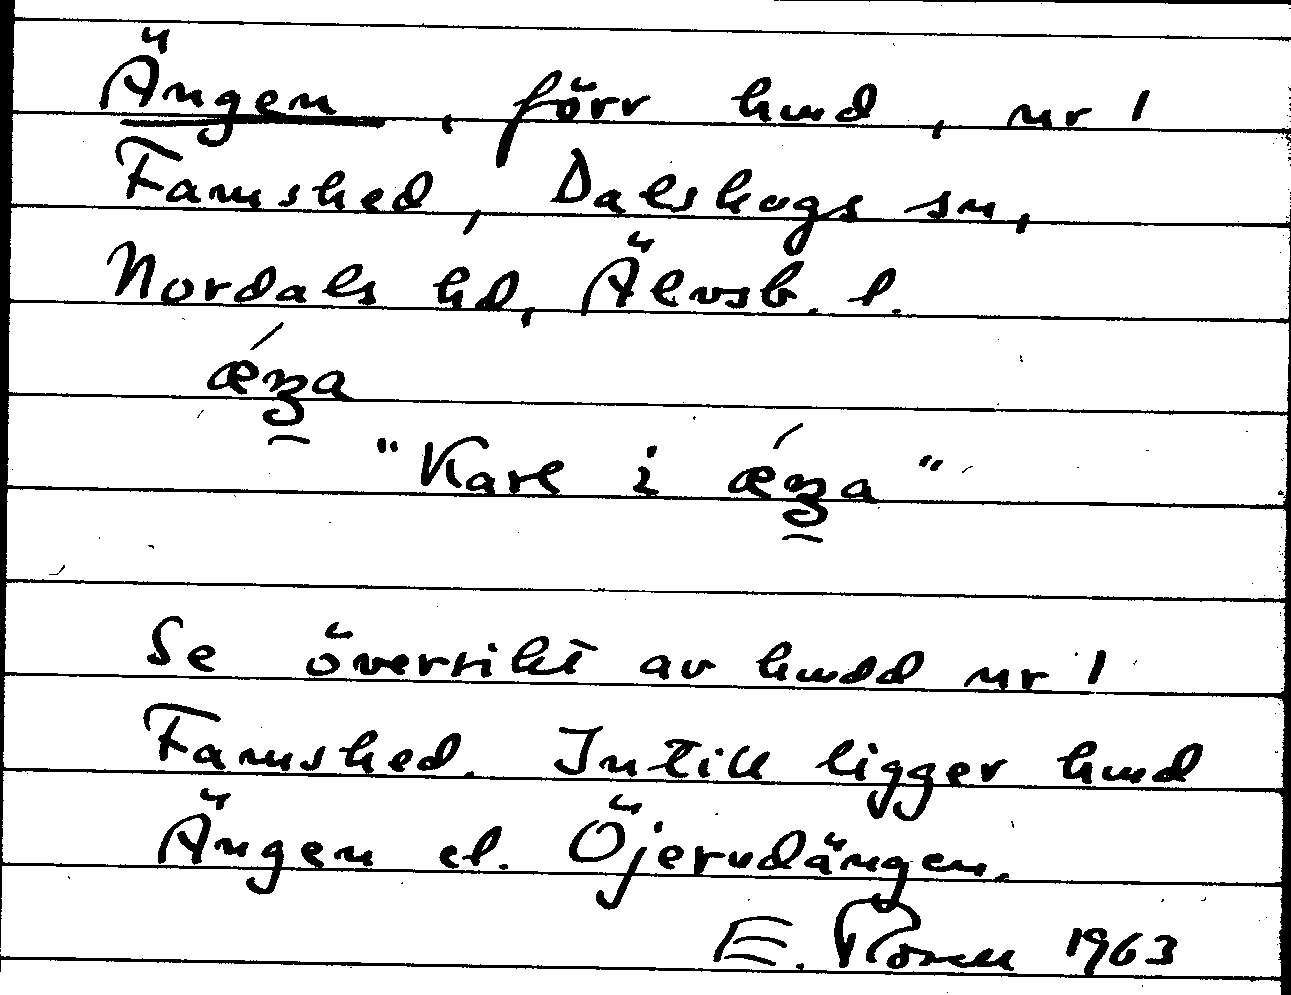 Ängen, förr hmd, nr 1
Famshed, Dalskogs sn,
Nordals hd, Älvsb. l.
ǽŋa
"Karl i ǽŋa"
Se översikt av hmdd nr 1
Famshed. Intill ligger hmd
Ängen el. Öjerudängen.
E. Rosell 1963